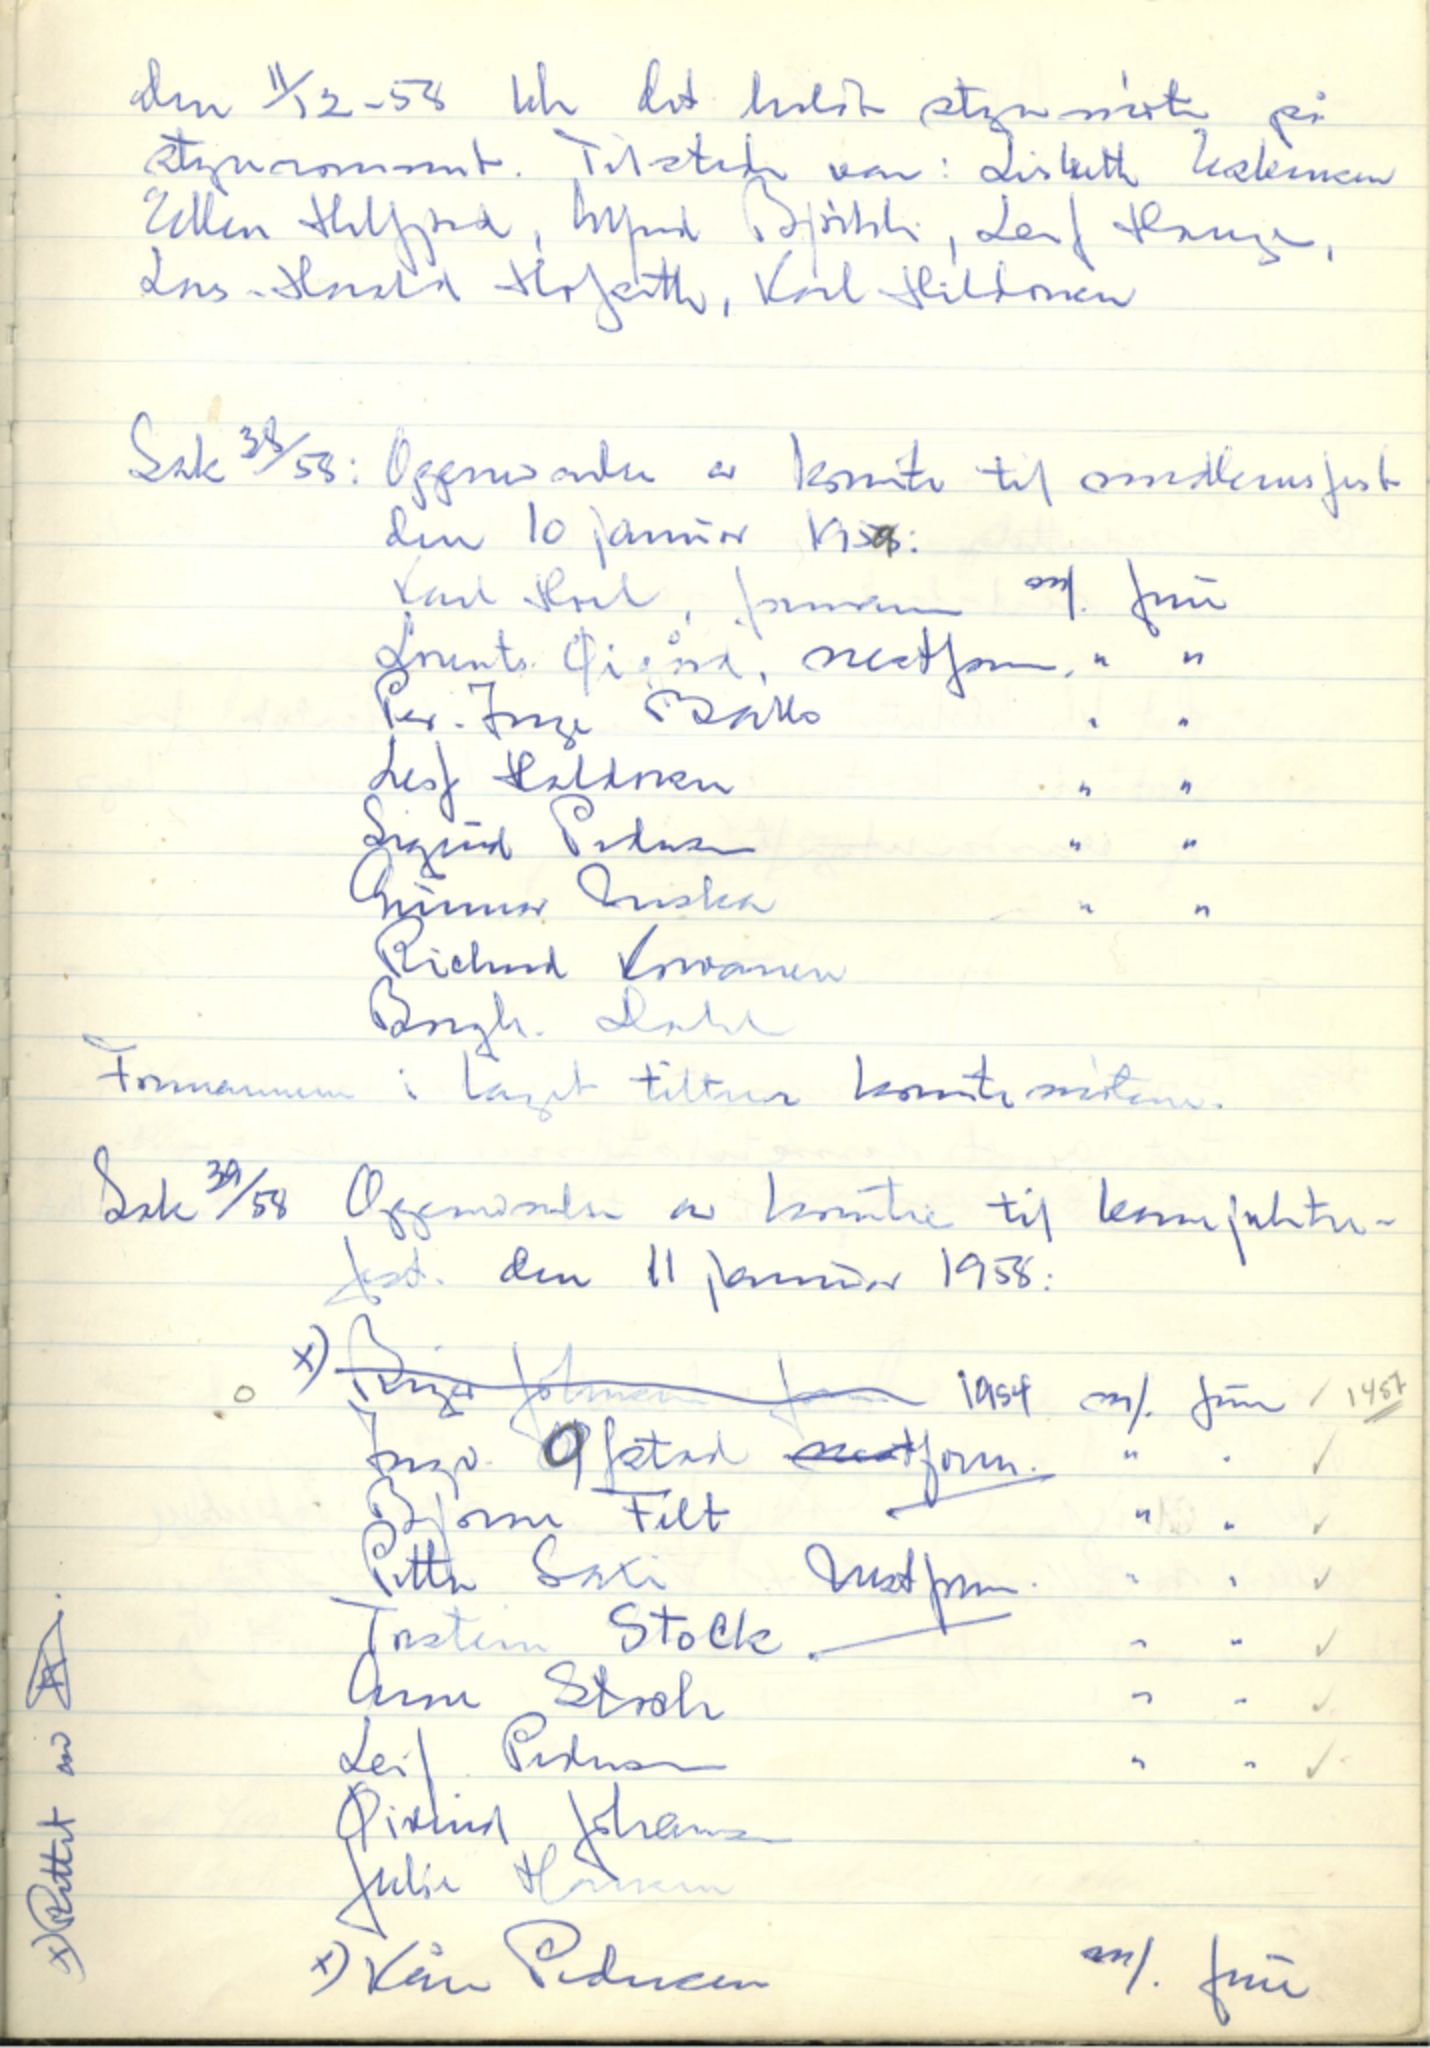 den 11/12-58 ble det holdt styremøte på
styrerommet. Tilstede var: Lisbeth Eskensen
Ellen Helfjord, Alfred Bjørkli, Leif Hauge,
Lars-Harald Hofseth, Karl Hildonen
Sak 38/58: Oppnevnelse av komite til medlemsfest
den 10 januar 1959:
Karl Hoel, formann m/. frue
Lorents Øigård, nestform. " "
Per-Inge Bakko " "
Leif Haldorsen " "
Sigurd Pedersen " "
Gunnar Niska " "
Richard Korvanen
Borgh. Dahl
Formannen i laget tiltrer komite møtene.
Sak 39/58 Oppnevnelse av komite til
fest. den 11 januar 1958:
x) Birger Johansen form 1954 m/. frue 1457
Ingv. Ofstad nestform. " "
Bjarne Filt " "
Petter Saxi Nestform. " "
Torstein Stock. " "
Arne Stock " "
Leif Pedersen " "
Øivind Johansen
Julie Hansen
x) Kåre Pedersen m/. frue
x) Rettet av